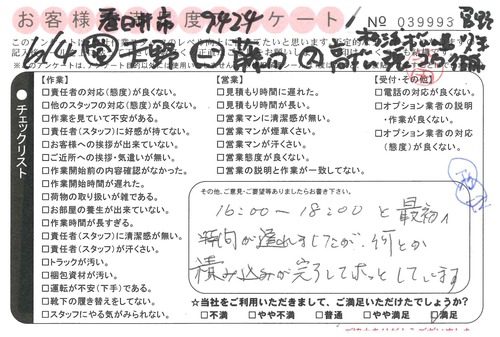 お客様満足度アンケート
春日井市 9424
No 039993
チェックリスト
【作業】
□責任者の対応(態度)が良くない。
□他のスタッフの対応(態度)が良くない。
□作業を見ていて不安がある。
□責任者(スタッフ)に好感が持てない。
□お客様への挨拶が出来ていない。
□ご近所への挨拶・気遣いが無い。
□作業開始前の内容確認がなかった。
□作業開始時間が遅れた。
□荷物の取り扱いが雑である。
□お部屋の養生が出来ていない。
□作業時間が長すぎる。
□責任者(スタッフ)に清潔感が無い。
□責任者(スタッフ)が汗くさい。
□トラックが汚い。
□梱包資材が汚い。
□運転が不安(下手)である。
□靴下の履き替えをしてない。
□スタッフにやる気がみられない。
【営業】
□見積もり時間に遅れた。
□見積もり時間が長い。
□営業マンに清潔感が無い。
□営業マンが煙草くさい。
□営業マンが汗くさい。
□営業態度が良くない。
□営業の説明と作業が一致してない。
【受付・その他】
□電話の対応が良くない。
□オプション業者の説明
・作業が良くない。
□オプション業者の対応
(態度)が良くない。
その他、ご意見・ご要望等ありましたらお書き下さい。
16:00〜18:00 と 最初
時間が遅れましたが、何とか
積み込みが完了してホッとしています
☆当社をご利用いただきまして、ご満足いただけたでしょうか?
□不満 □やや不満 □普通 □やや満足 ☑満足